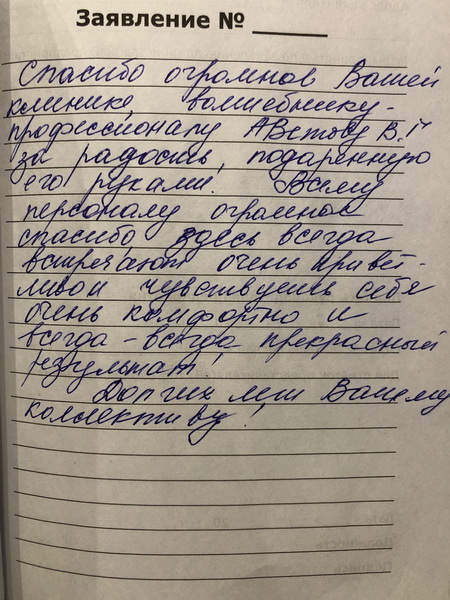 Заявление № ______
Спасибо огромное Вашей
клинике, волшебнику-
профессионалу Аветову В.Г
за радость, подаренную
его руками. Всему
персоналу огромное
спасибо здесь всегда
встречают очень привет-
ливо чувствуешь себя
очень комфортно и
всегда-всегда прекрасный
результат!
Долгих лет Вашему
коллективу!